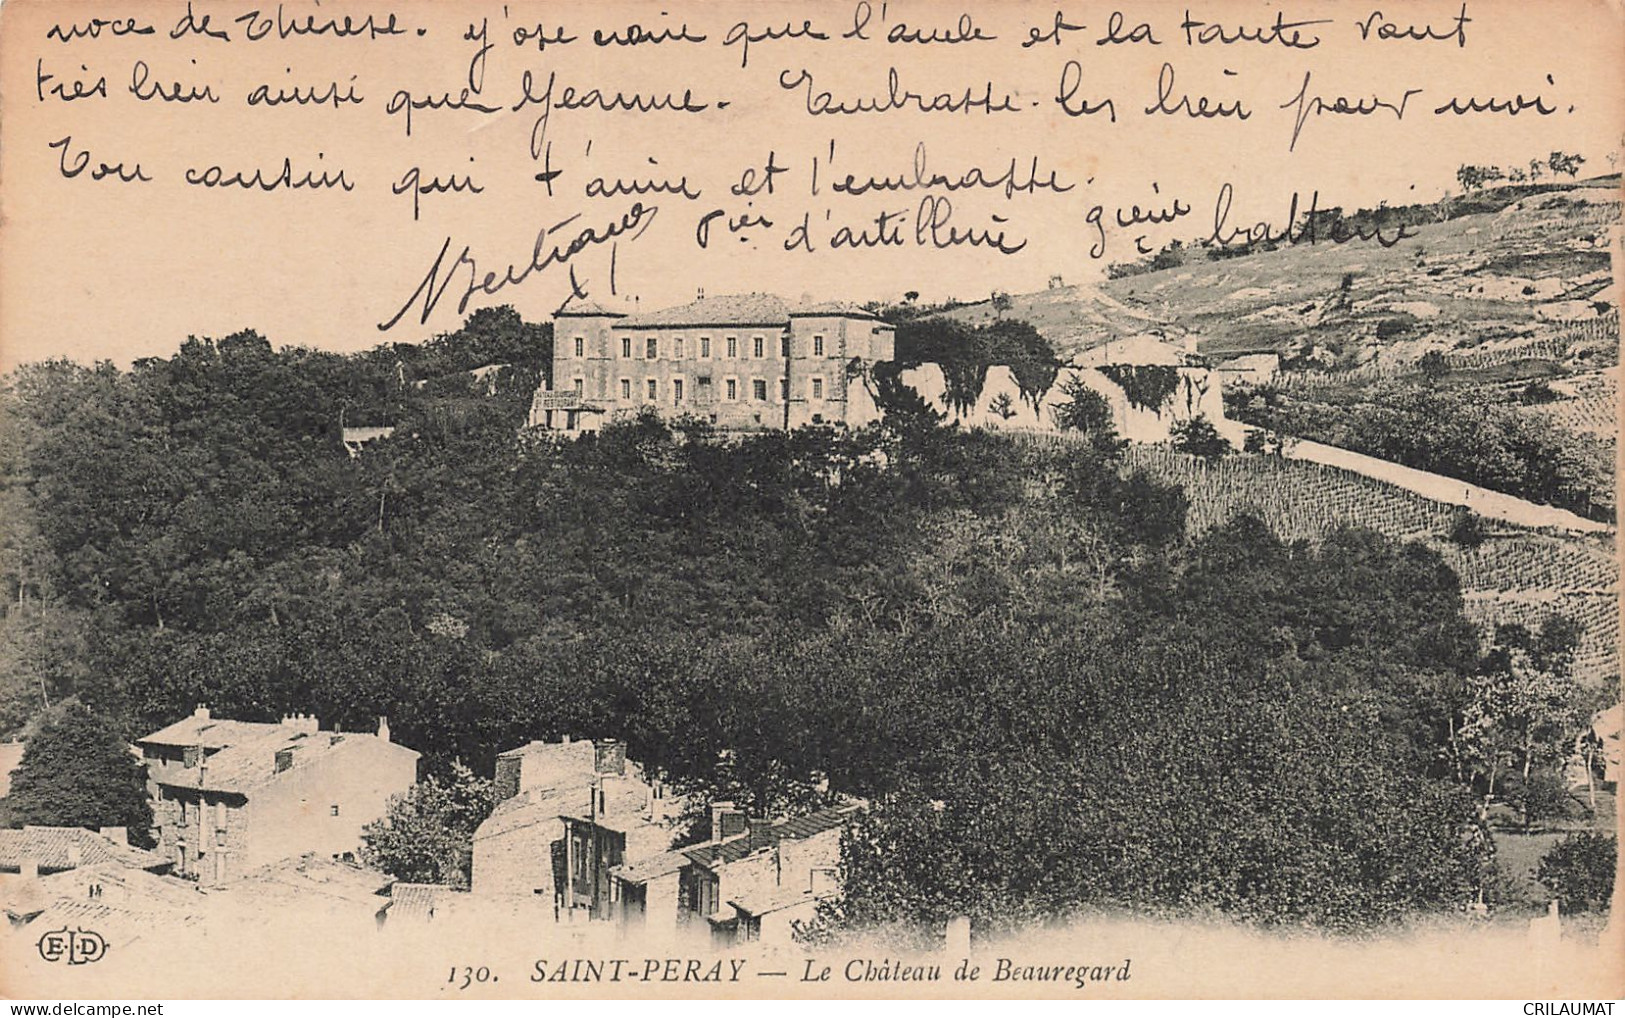 noce de Thérèse. J'ose croire que l'oncle et la tante vont
très bien ainsi que Jeanne. Embrasse-les bien pour moi.
Ton cousin qui t'aime et l'embrasse.
Bertrand 1er d'artillerie 9ième batterie
E.L.D
130. SAINT-PERAY — Le Château de Beauregard
CRILAUMAT